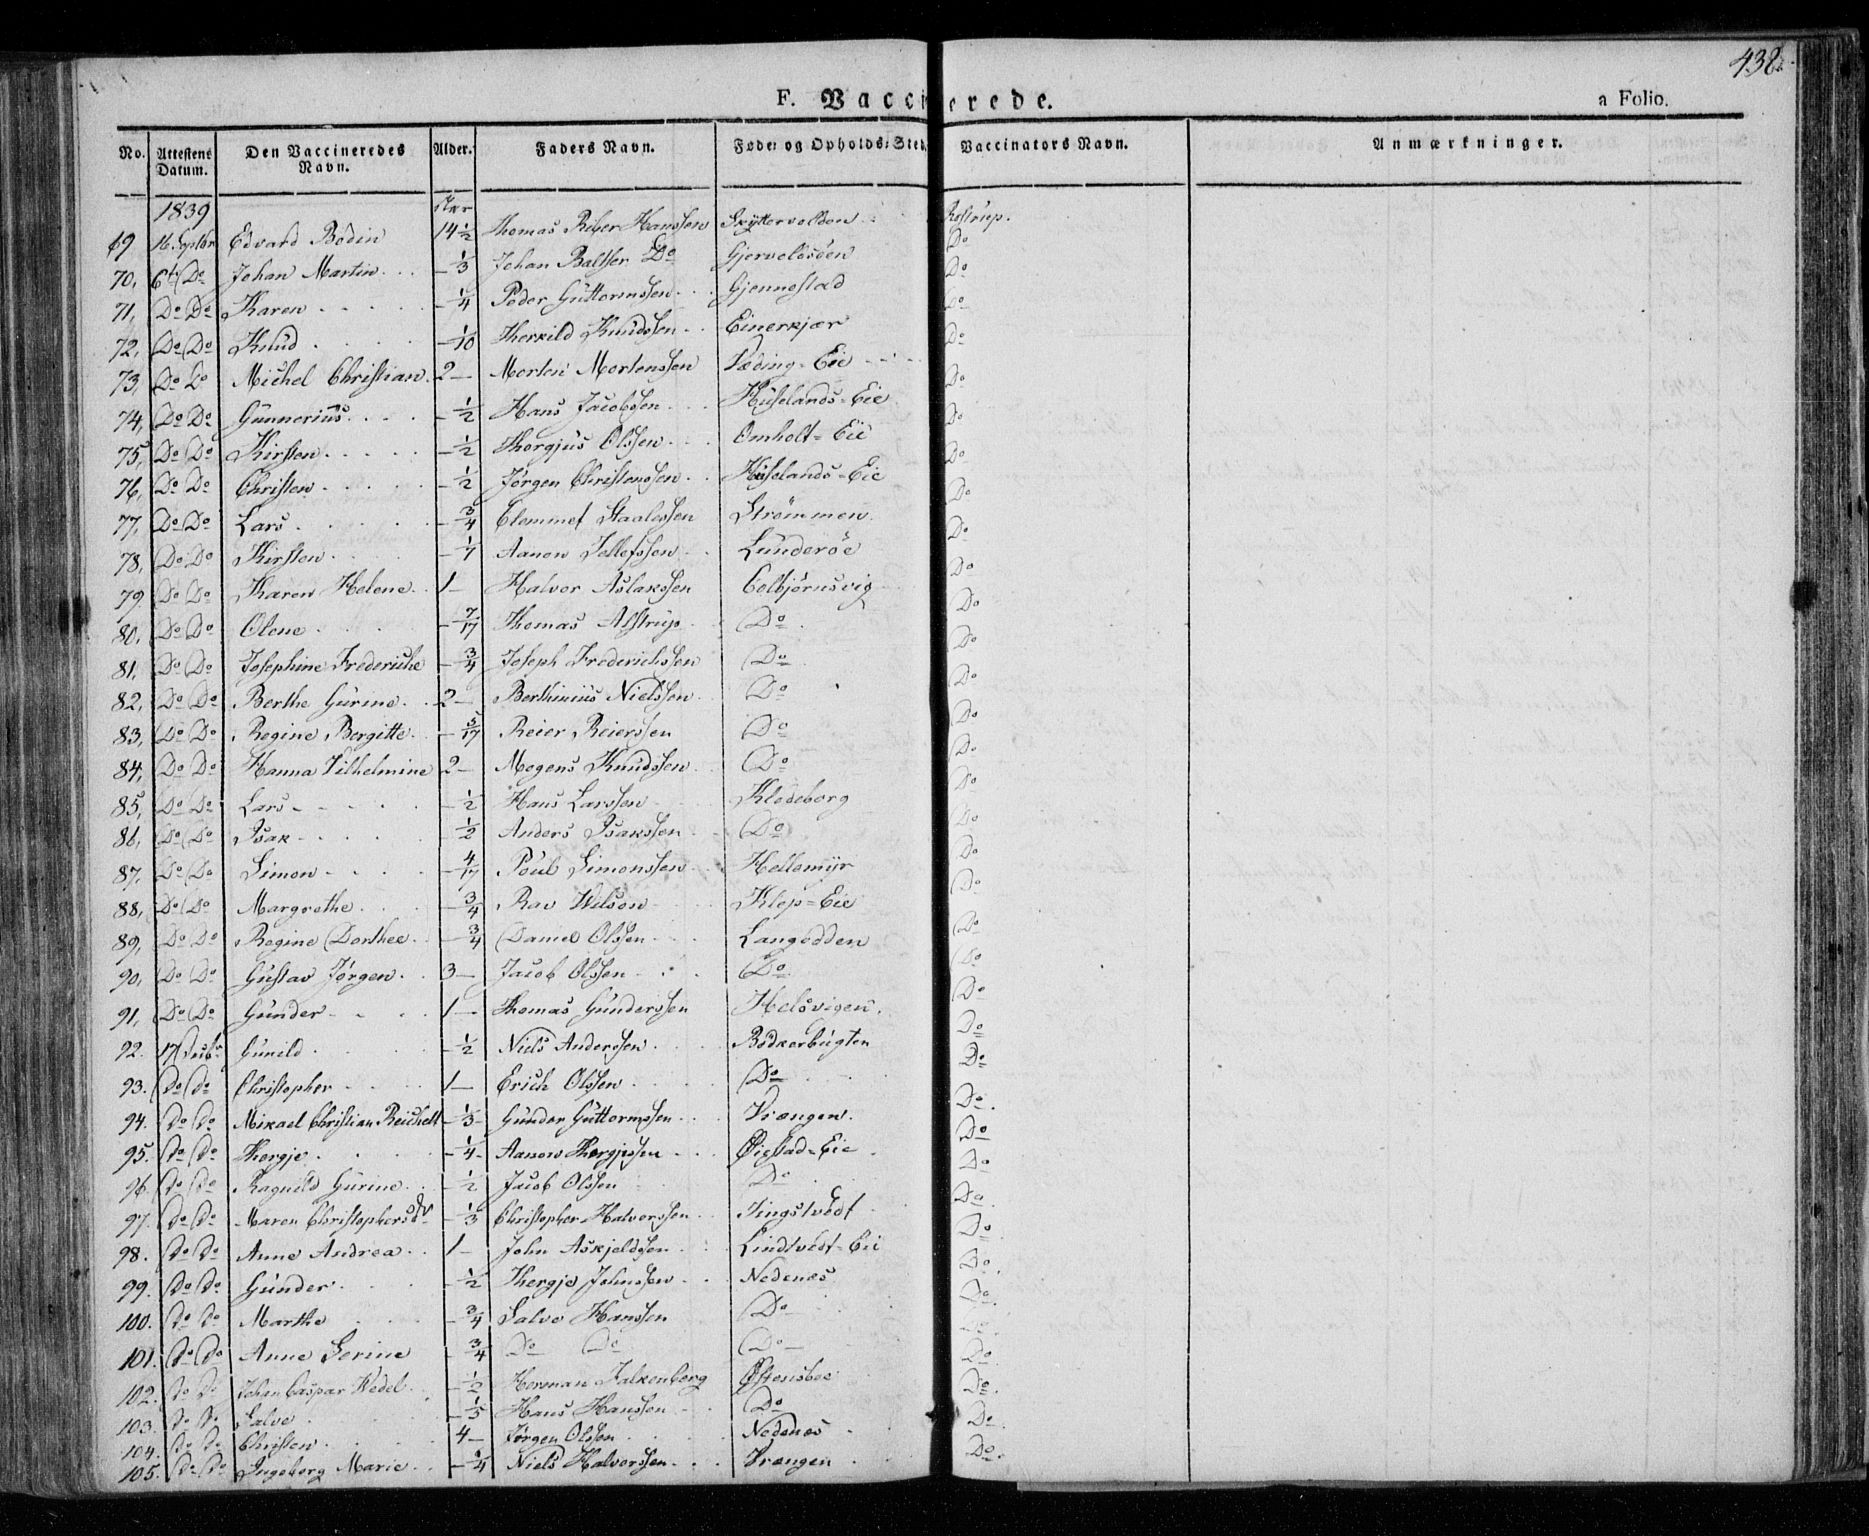 438
F. Vaccinerede. a Folio.
No. Attestens Datum. Den Vaccineredes Navn. Alder. Faders Navn. Føde og Opholds-Sted Vaccinators Navn. Anmærkninger.
1839 Aar
69 16 Septbr Edvard Bodin 14 1/2 Thomas Riber Hanssen Skyttervolden Rostrup.
70, Do Johan Martin - 1/3 Johan Baltser Do Gjervoldsöen Do
71, Do Do Karen - 1/4 Peder Guttormssen Gjennestad Do
72, Do Do Knud - 1/10 Therkild Knudssen Einerkjær Do
73, Do Do Michel Christian. 2 - Morten Mortenssen Læding-Eie Do
74, Do Do Gunnerius - 1/2 Hans Jacobssen Huselands-Eie Do
75, Do Do Kirsten - 1/2 Thorgjus Olssen Omholt-Eie Do
76, Do Do Christen - 1/2 Jörgen Christenssen Huselands-Eie Do
77, Do Do Lars - 3/4 Clemmet Staalessen Strömmen Do
78, Do Do Kirsten - 1/7 Aanon Tellefssen Lunderöe Do
79, Do Do Karen Helene 1 - Halvor Aslakssen Colbjörnsvig Do
80, Do Do Olene - 7/17 Thomas Alstrup Do Do
81, Do Do Josephine Frederiche - 3/4 Joseph Frederichssen Do Do
82, Do Do Berthe Gurine 2 - Berthinius Nielssen Do Do
83, Do Do Regine Bergitte - 5/17 Reier Reierssen Do Do
84, Do Do Hanna Vilhelmine 2 - Mogens Knudssen Do Do
85, Do Do Lars - 1/2 Hans Larssen Klodeborg Do
86, Do Do Isak - 1/2 Anders Isakssen Do Do
87, Do Do Simon - 4/17 Poul Simonssen Hellemyr Do
88, Do Do Margrethe - 3/4 Rav Wilson Klep-Eie Do
89, Do Do Regine Dorthee - 3/4 Daniel Olssen Langodden Do
90, Do Do Gustav Jørgen 3 - Jacob Olssen Do Do
91, Do Do Gunder 1 - Thomas Gunderssen Helsvigen Do
92. 17 Decbr Gunild - 1/2 Niels Anderssen Bødkerbugten Do
93. Do Do Christopher 1 - Erich Olssen Do Do
94. Do Do Mikael Christian Reichelt - 1/3 Gunder Guttormssen Vrængen Do
95. Do Do Thorgje - 1/4 Aanon Thorgjussen Øigstad-Eie Do
96. Do Do Ragnild Gurine - 1/2 Jacob Olssen Do Do
97. Do Do Maren Christophersdr - 1/3 Christopher Halvorssen Tingstvedt Do
98. Do Do Anne Andrea 1 - John Askjeldssen Lindtvedt-Eie Do
99. Do Do Gunder - 1/2 Thorgje Johnssen Nedenæs Do
100. Do Do Marthe - 3/4 Salve Hanssen Do Do
101. Do Do Anne Serine - 3/4 Do Do Do Do
102. Do Do Johan Caspar Wedel - 1/2 Herman Falkenberg Østensboe Do
103. Do Do Salve - 1/5 Hans Hanssen Do Do
104. Do Do Christen 4 - Jørgen Olssen Nedenæs Do
105. Do Do Ingeborg Marie - 1/4 Niels Halvorssen Vrængen Do